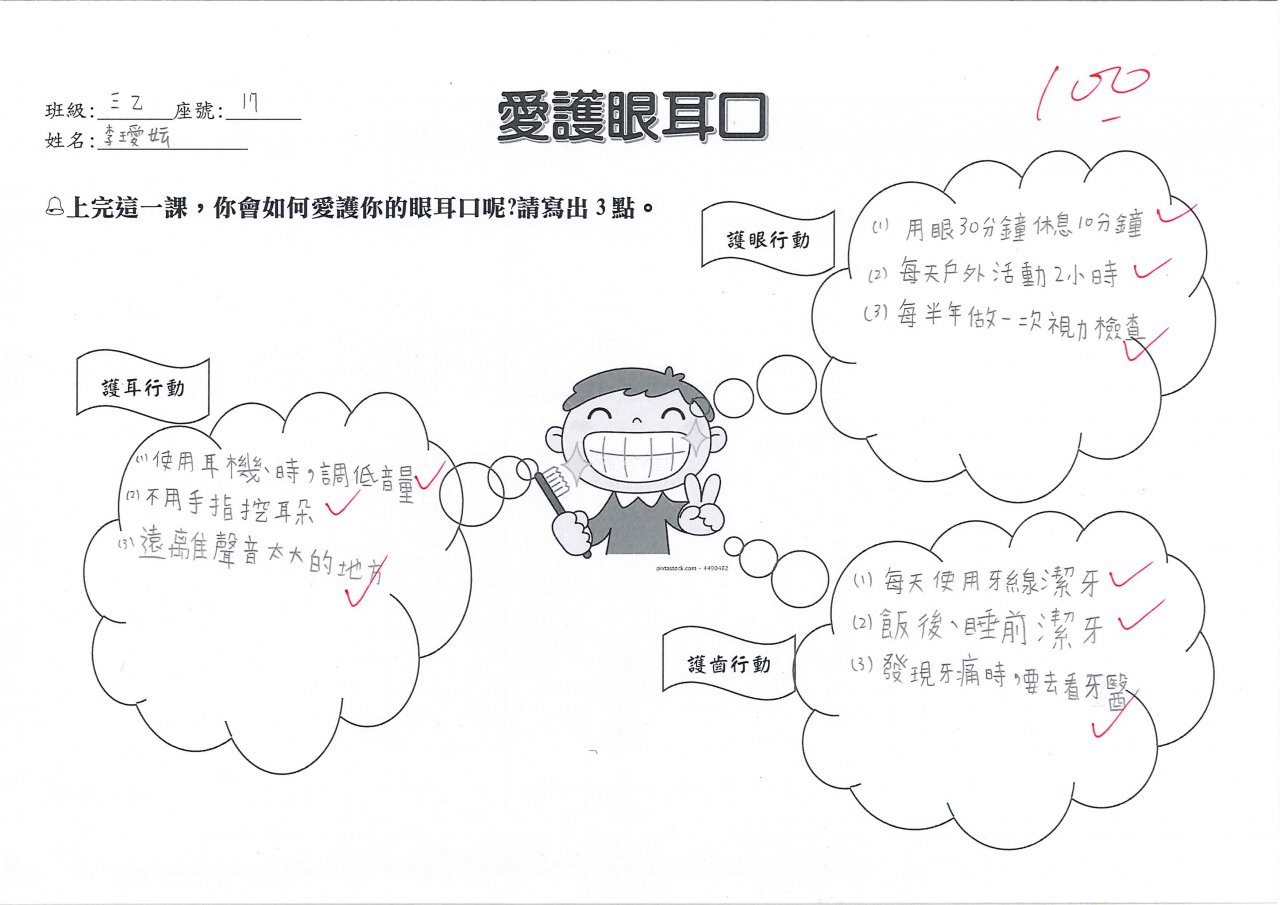 100
愛護眼耳口
班級:三乙 座號:17
姓名:李璦妘
上完這一課，你會如何愛護你的眼耳口呢?請寫出3點。
護眼行動
(1) 用眼30分鐘休息10分鐘
(2) 每天戶外活動2小時
(3) 每半年做一次視力檢查
護耳行動
(1) 使用耳機、時，調低音量
(2) 不用手指挖耳朵
(3) 遠離聲音太大的地方
pixtastock.com - 4490482
護齒行動
(1) 每天使用牙線潔牙
(2) 飯後、睡前潔牙
(3) 發現牙痛時，要去看牙醫